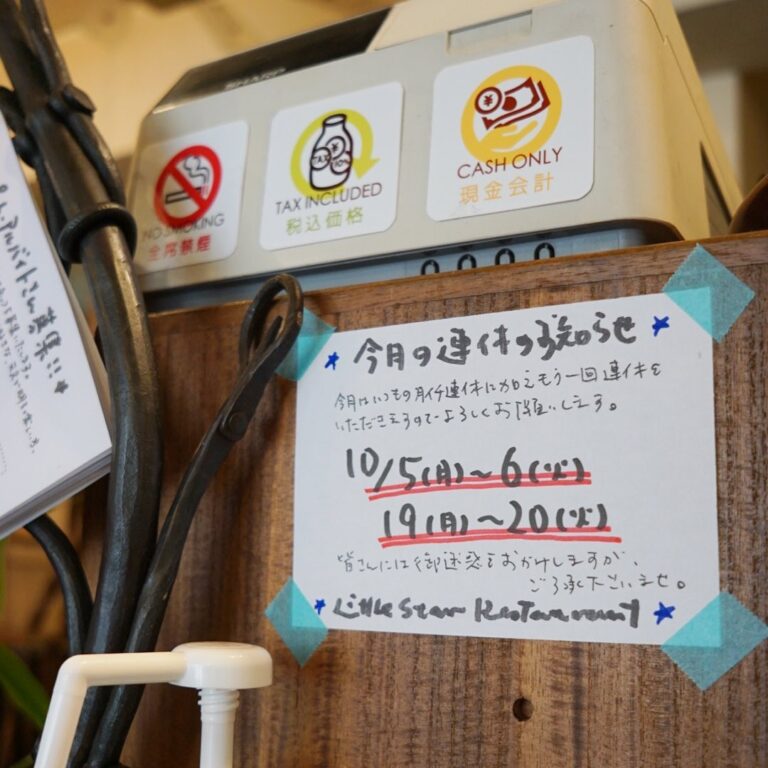 SHARP
NO SMOKING
全席禁煙
TAX ¥ 10%
TAX INCLUDED
税込価格
¥
CASH ONLY
現金会計
アルバイトさん募集!!!
★今月の連休のお知らせ★
今月はいつもの月イチ連休に加えもう一回連休を
いただきますのでよろしくお願いします。
10/5(月)~6(火)
19(月)~20(火)
皆さんには御迷惑をおかけしますが、
ご了承下さいませ。
★Little Star Restaurant★